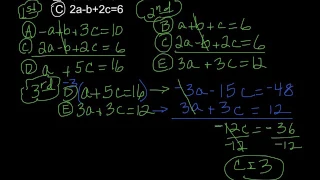 1st
Ⓒ 2a-b+2c=6
2nd
Ⓐ -a+b+3c=10
Ⓒ 2a-b+2c=6
Ⓓ a +5c=16
Ⓑ a+b+c=6
Ⓒ 2a-b+2c=6
Ⓔ 3a +3c=12
3rd
-3( )
Ⓓ a+5c=16
Ⓔ 3a+3c=12
-3a-15c=-48
3a+3c=12
-12c=-36
-12 -12
c=3